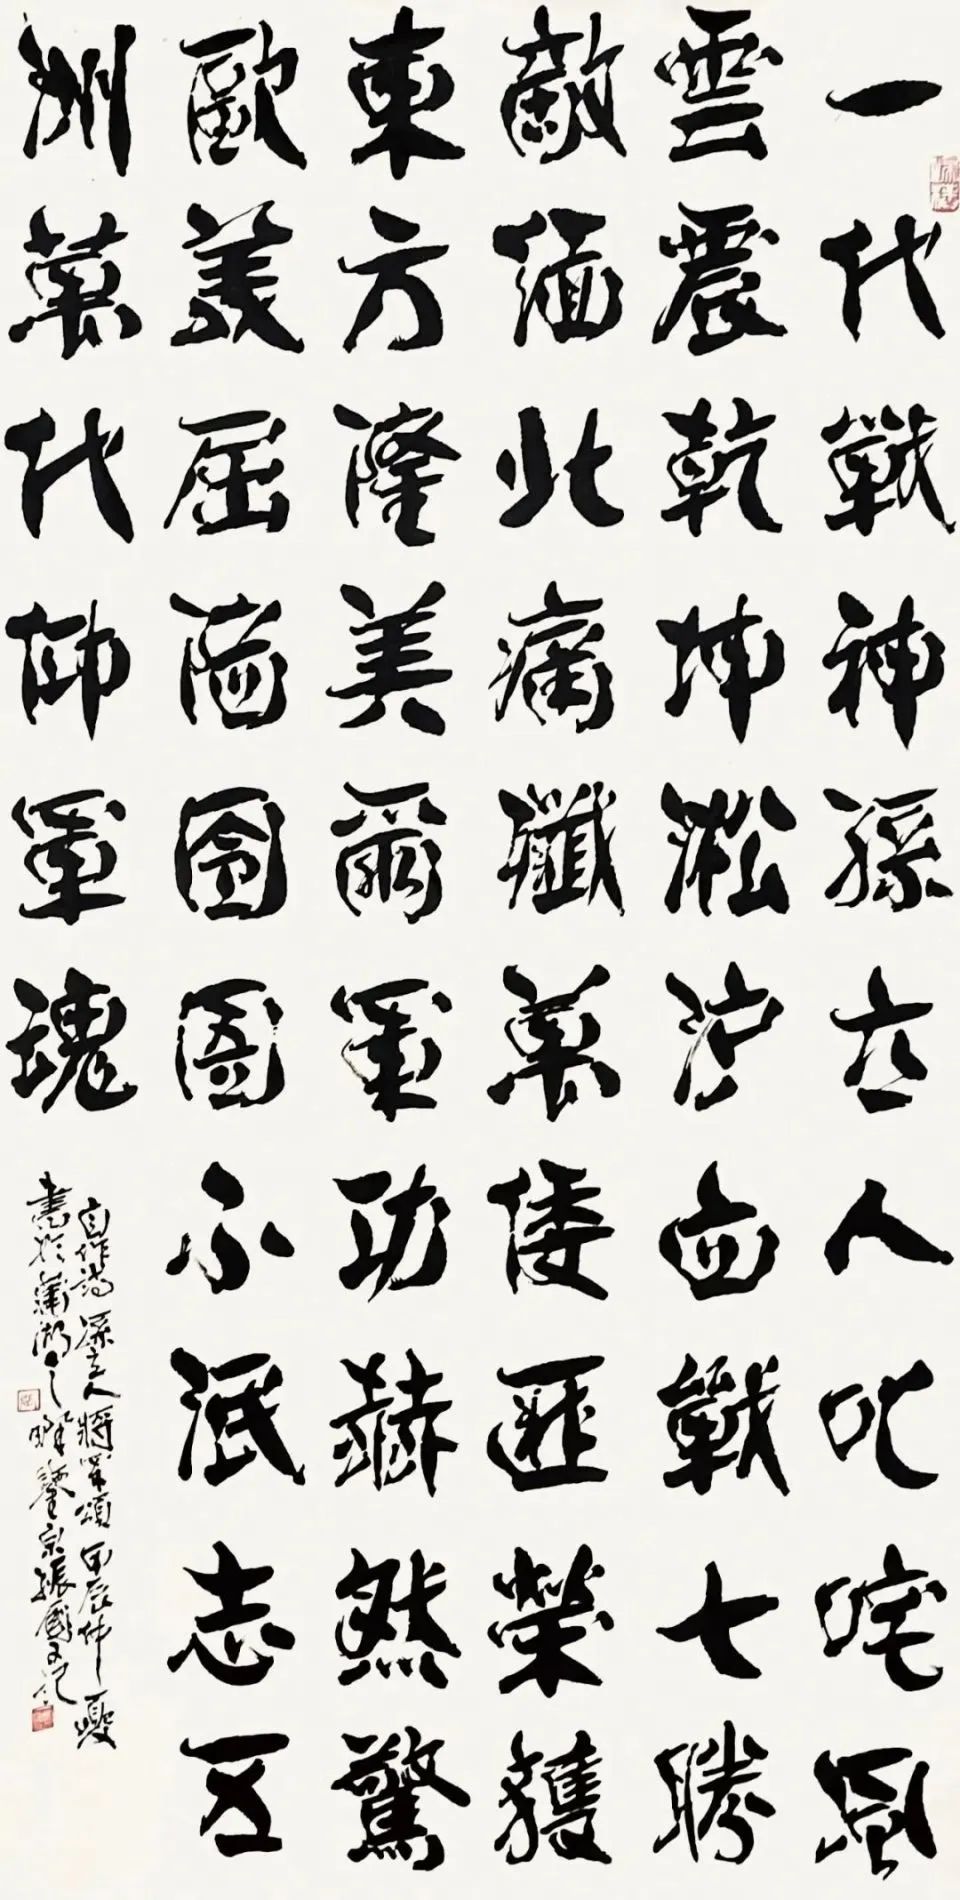 一代戰神孫立人叱咤風
雲震乾坤淞沪血戰七勝
敵緬北痛殲萬倭匪榮獲
東方隆美爾軍功赫然驚
歐美屈陷囹圄不泯志五
洲萬代仰軍魂
自作詩孫立人將軍頌甲辰仲夏
書於蕭湖之畔 宗振國又記